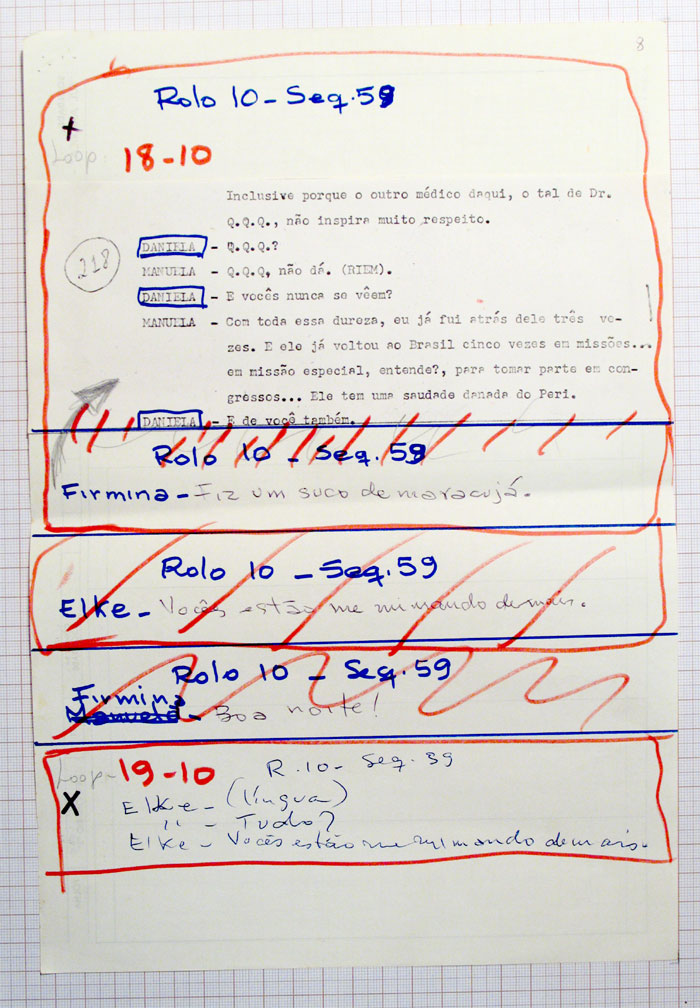 8
Rolo 10 - Seq. 59
+
Loop: 18-10
Inclusive porque o outro médico daqui, o tal de Dr.
Q.Q.Q., não inspira muito respeito.
218
DANIELA - Q.Q.Q.?
MANUELA - Q.Q.Q, não dá. (RIEM).
DANIELA - E vocês nunca se vêem?
MANUELA - Com toda essa dureza, eu já fui atrás dele três ve-
zes. E ele já voltou ao Brasil cinco vezes em missões...
em missão especial, entende?, para tomar parte em con-
gressos... Ele tem uma saudade danada do Peri.
DANIELA - E de você também.
Rolo 10 - Seq. 59
Firmina - Fiz um suco de maracujá.
Rolo 10 - Seq. 59
Elke - Vocês estão me mimando demais.
Rolo 10 - Seq. 59
Firmina
Manuela - Boa noite!
Loop - 19-10 R. 10 - Seq. 59
X
Elke - (língua)
" - Tudo?
Elke - Vocês estão me mimando demais.